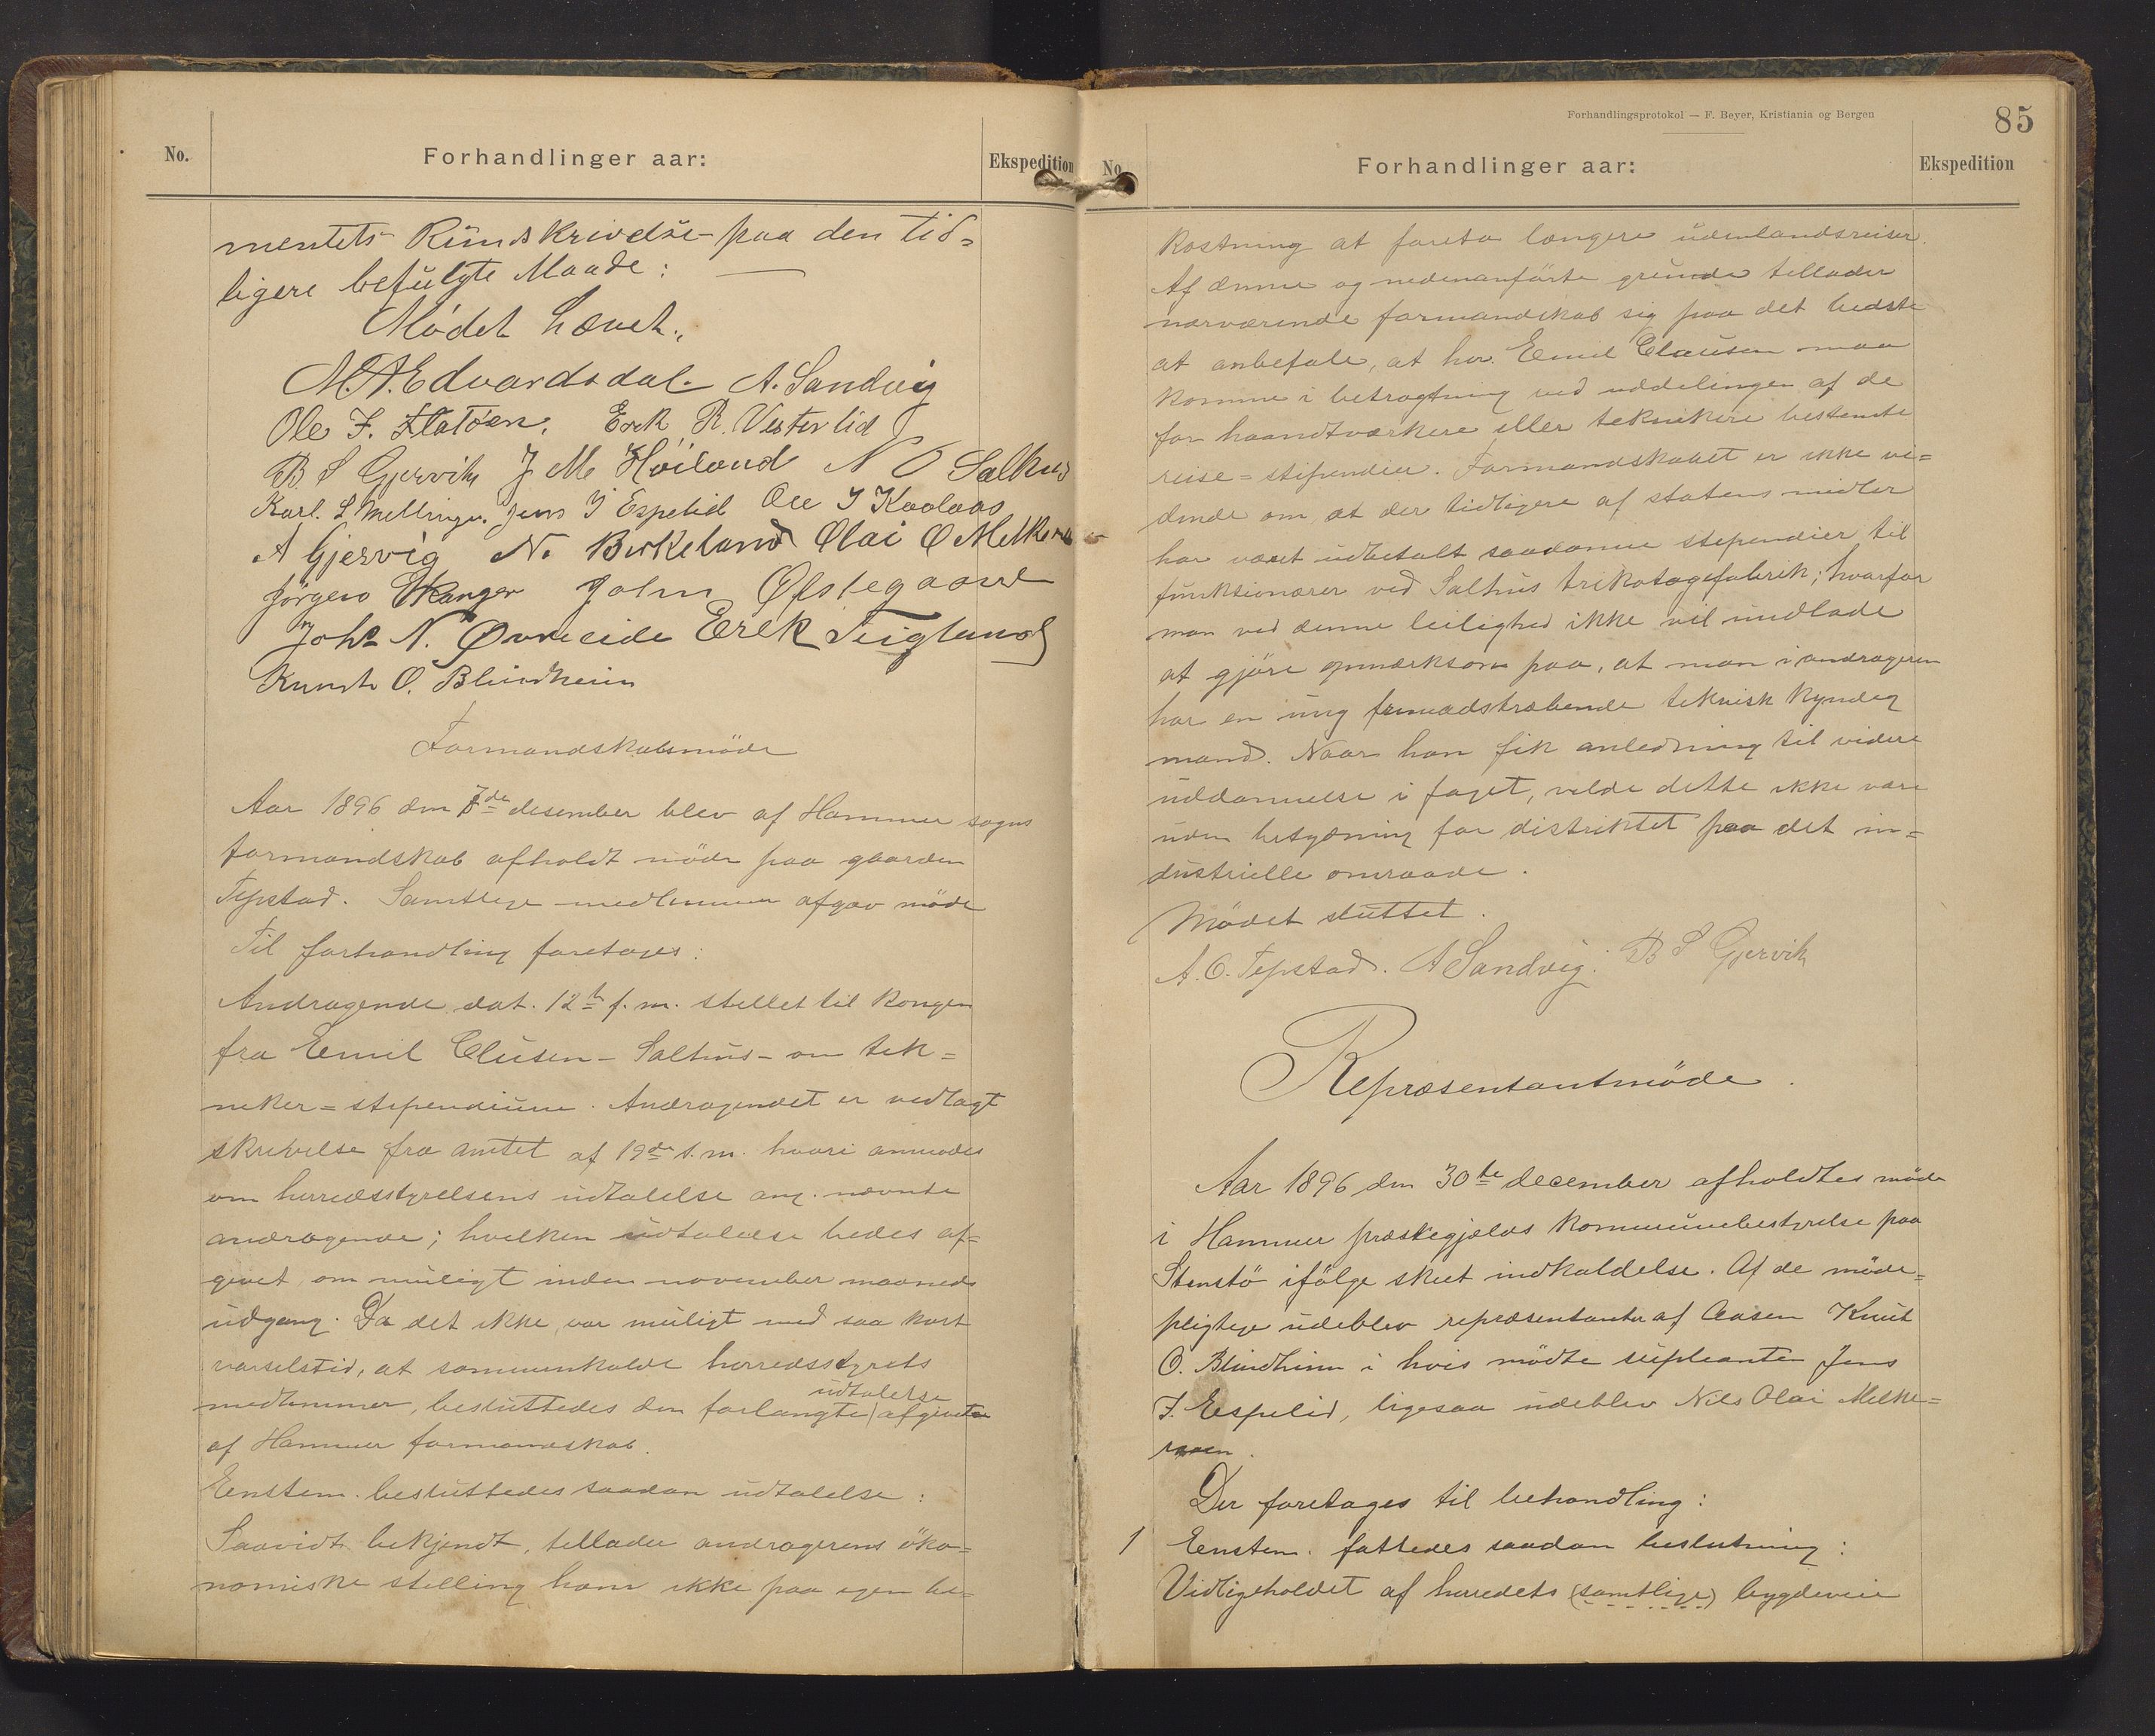 No.
Forhandlinger aar:
Ekspedition
mentets Rundskrivelse paa den tid-
ligere befulgte Maade:
Mødet hævet.
M.A. Edvardsdal. A. Sandvig
Ole J. Flatöen. Erik R. Vesterlid
B S Gjervik J M Höiland N O Salhus
Karl. L Mellingen. Jens J Espelid Ole J Kaalaas
A Gjervig N. Birkeland Olai O Melkeraaen
Jørgen Vkanger John Øfstegaard
Johs N. Øvreeide Erek Teigland
Knut O. Blindheim
Formandskabsmöde
Aar 1896 den 7de desember blev af Hammer sogns
formandskab afholdt möde paa gaarden
Tepstad. Samtlige medlemmer afgav möde
Til forhandling foretages:
Andragende dat. 12te f. m. stillet til Kongen
fra Emil Clusen - Salhus - om tek=
niker=stipendium. Andragendet er vedlagt
skrivelse fra amtet af 19de s.m. hvori anmodes
om herredsstyrelsens udtalelse ang. nævnte
andragende; hvilken udtalelse bedes af=
givet om muligt inden november maaneds
udgang. Da det ikke var muligt med saa kort
varselstid, at sammenkalde herredsstyrets
medlemmer, besluttedes den forlangte udtalelse afgivet
af Hammer formandskab.
Enstem. besluttedes saadan udtalelse:
Saavidt bekjendt, tillader andragerens öko=
nomiske stilling ham ikke paa egen be=
Forhandlingsprotokol — F. Beyer, Kristiania og Bergen
85
No.
Forhandlinger aar:
Ekspedition
kostning at foreta længere udenlandsreiser.
Af denne og nedenanförte grunde tillader
nærværende formandskab sig paa det bedste
at anbefale, at hr. Emil Clausen maa
komme i betragtning ved uddelingen af de
for haandtværkere eller teknikere bestemte
reise=stipendier. Formandskabet er ikke vi=
dende om at der tidligere af statens midler
har været udbetalt saadanne stipendier til
funktionærer ved Salhus trikotagefabrik; hvorfor
man ved denne leilighed ikke vil undlade
at gjöre opmærksom paa, at man i andrageren
har en ung fremadstræbende teknisk kyndig
mand. Naar han fik anledning til videre
uddannelse i faget, vilde dette ikke være
uden betydning for distriktet paa det in=
dustrielle omraade.
Mödet sluttet.
A. O. Tepstad. A Sandvig. B S Gjervik
Repræsentantmöde.
Aar 1896 den 30te december afholdtes möde
i Hammer præstegjelds kommunebestyrelse paa
Stenstö ifölge skeet indkaldelse. Af de möde=
pligtige udeblev repræsentanter af Aasen Knut
O. Blindheim i hvis mödte supleanten Jens
J. Espelid, ligesaa udeblev Nils Olai Melke=
raaen.
Der foretages til behandling:
1 Enstem. fattedes saadan beslutning:
Vidligeholdet af herredets (samtlige) bygdeveie